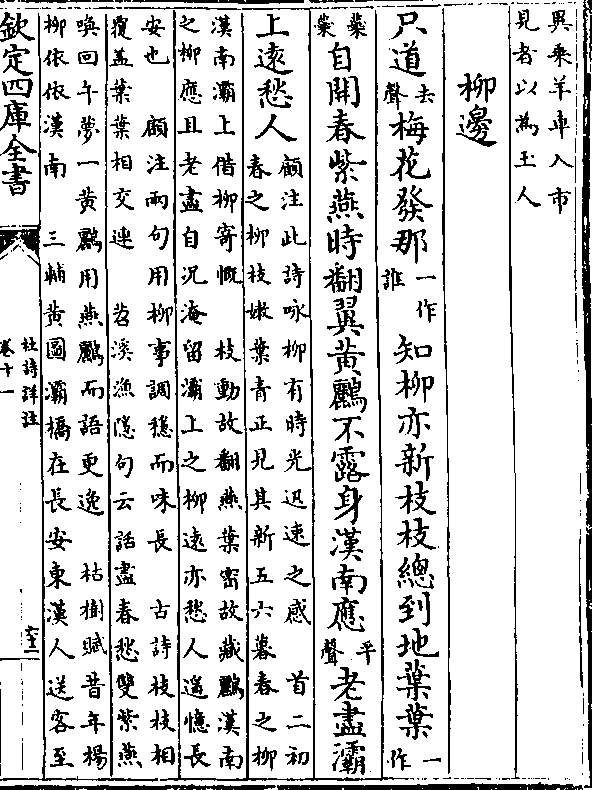 異乗羊車入市
見者以為玉人
柳邊
只道去聲梅花發那一作誰知柳亦新枝枝總到地葉葉一作
蘂蘂自開春紫燕時翻翼黃鸝不露身漢南應平聲老盡灞
上遠愁人
顧注此詩咏柳有時光迅速之感 首二初
春之柳枝嫩葉青正見其新五六暮春之柳
漢南灞上借柳寄慨 枝動故翻燕葉密故藏鸝漢南
之柳應且老盡自況淹留灞上之柳遠亦愁人遥憶長
安也 顧注兩句用柳事調穩而味長 古詩枝枝相
覆盖葉葉相交連 苕溪漁隱句云話盡春愁雙紫燕
喚回午夢一黃鸝用燕鸝而語更逸 枯樹賦昔年楊
柳依依漢南 三輔黃圖灞橋在長安東漢人送客至
欽定四庫全書
杜詩詳註
卷十一